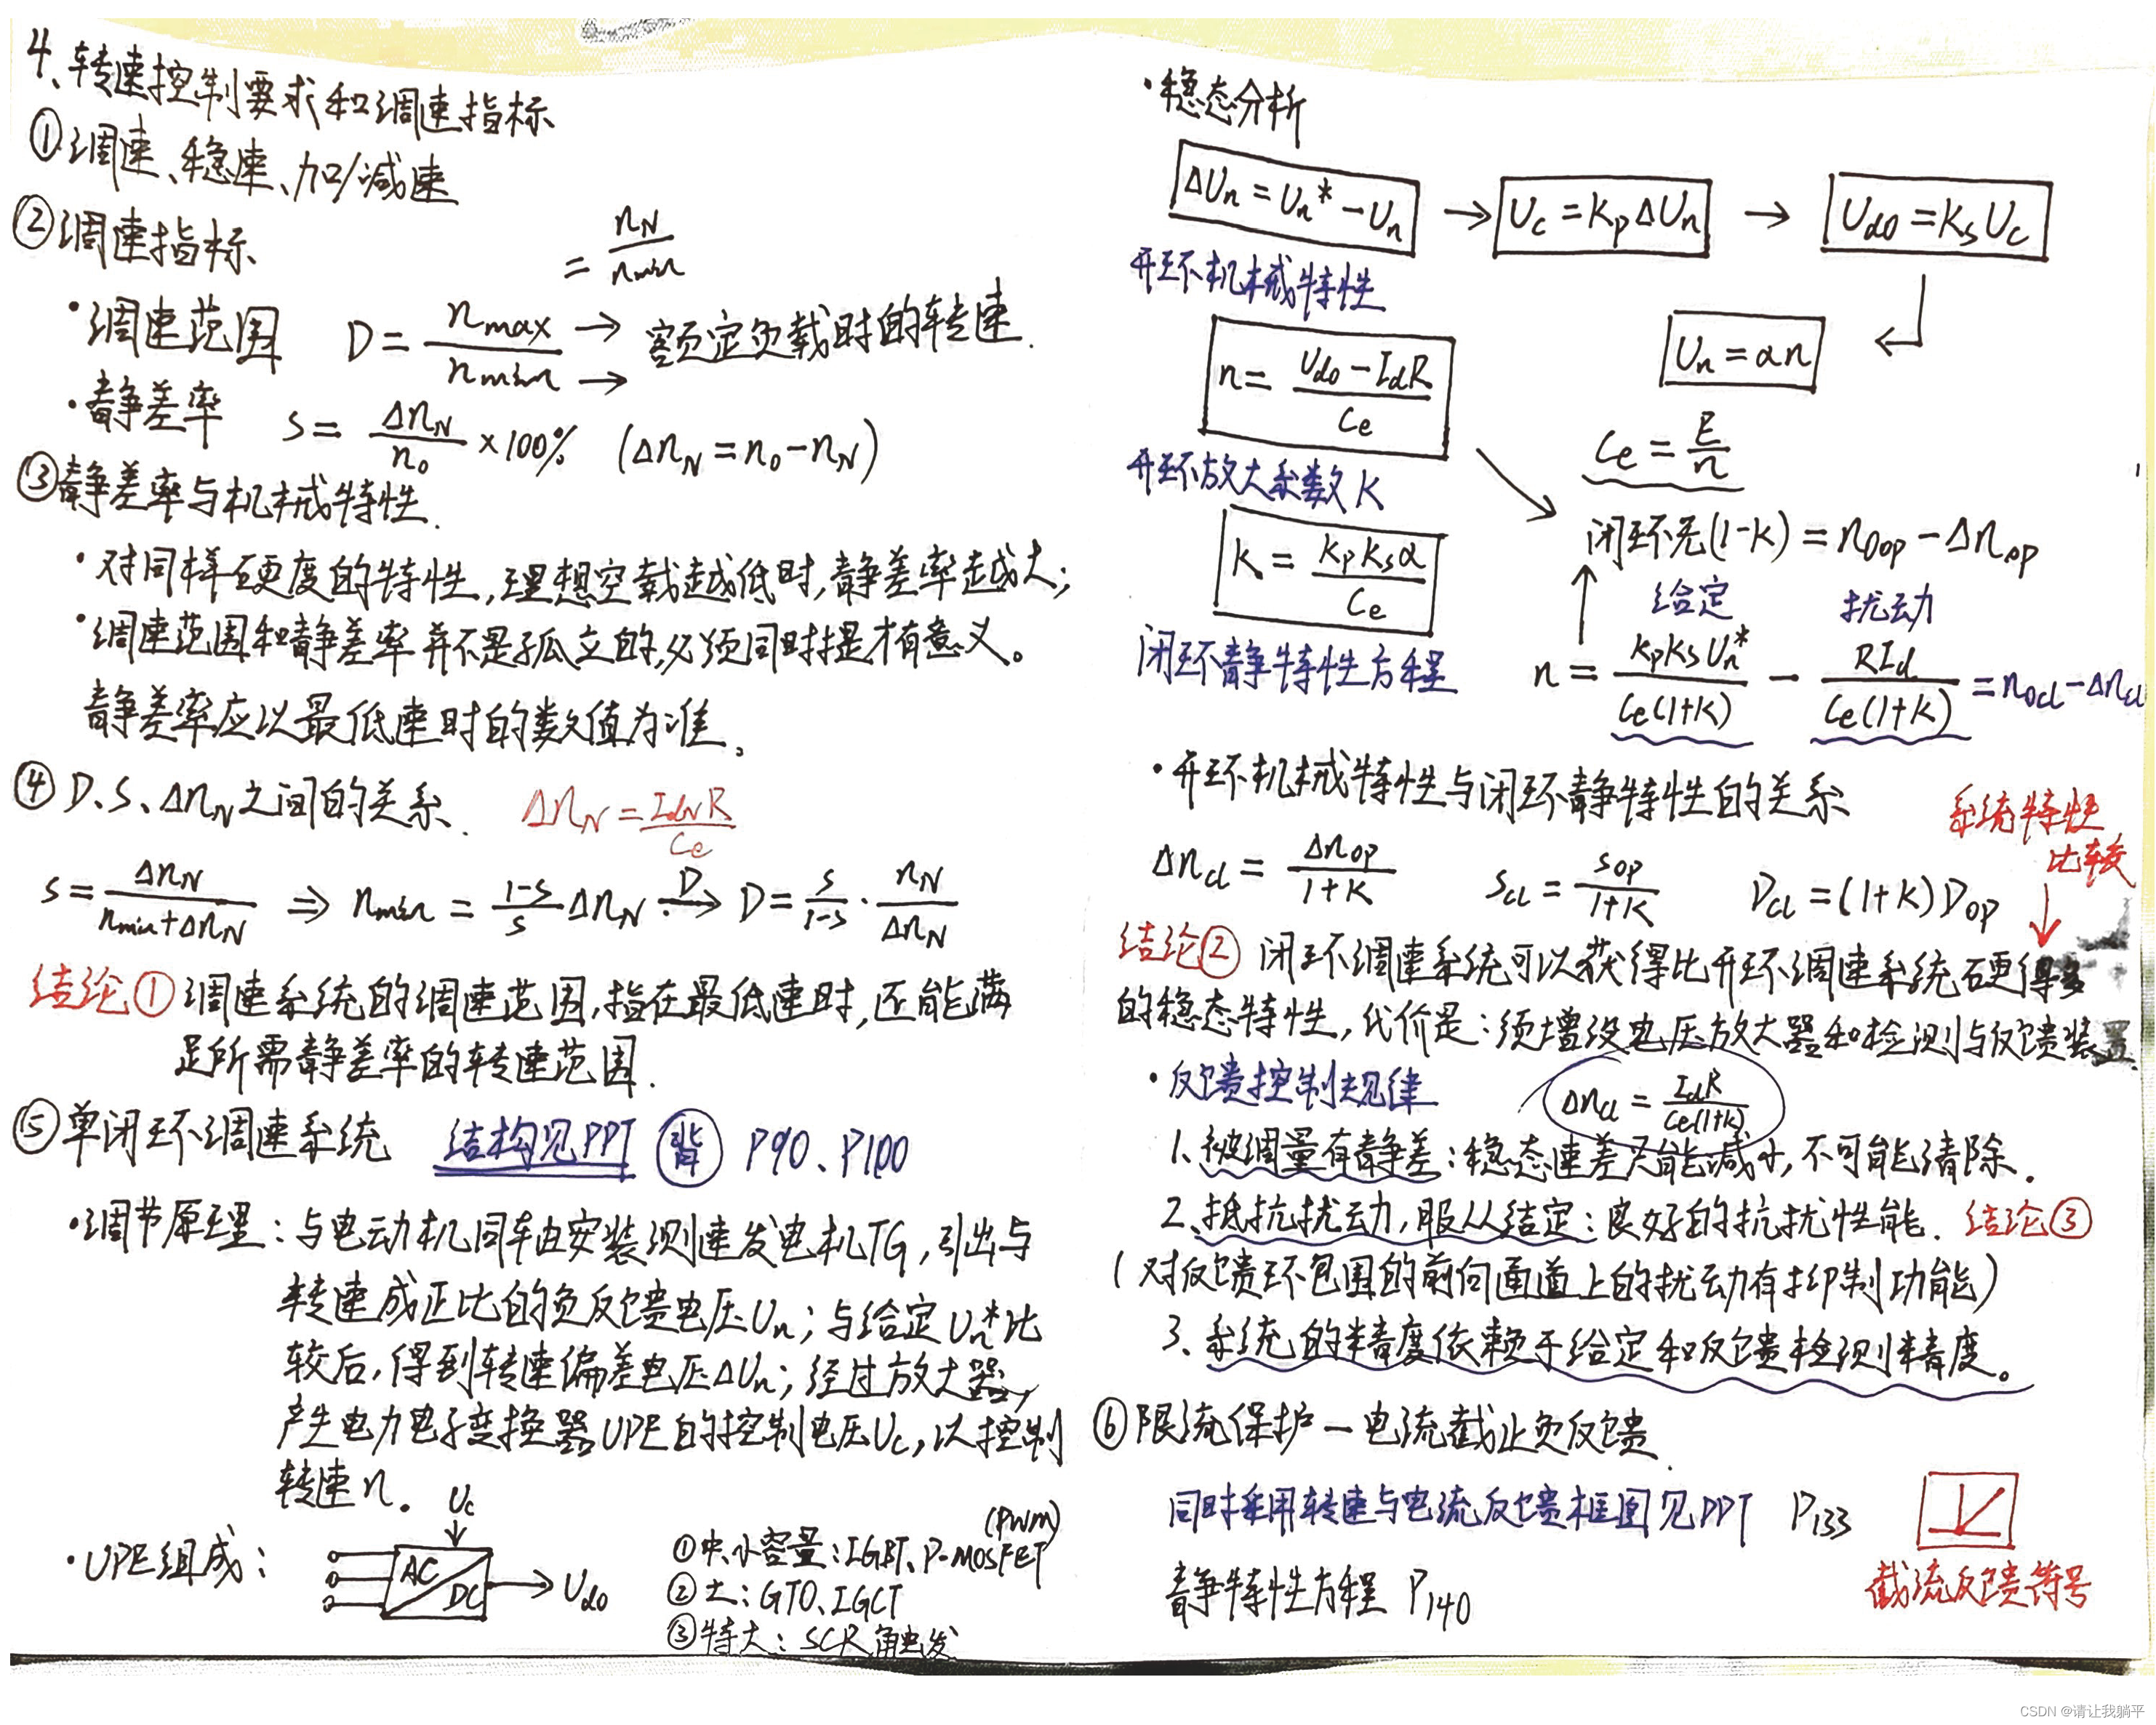 4、转速控制要求和调速指标
①调速、稳速、加/减速
②调速指标
= nN/nmin
·调速范围 D = nmax/nmin → → 额定负载时的转速.
·静差率 s = ΔnN/n0 ×100% (ΔnN = n0 - nN)
③静差率与机械特性.
·对同样硬度的特性,理想空载越低时,静差率越大;
·调速范围和静差率并不是孤立的,必须同时提才有意义。
静差率应以最低速时的数值为准。
④D、S、ΔnN之间的关系. ΔnN = IdNR/Ce
s = ΔnN/(nmin+ΔnN) ⇒ nmin = (1-s)/s ΔnN D→ D = s/(1-s) · nN/ΔnN
结论① 调速系统的调速范围,指在最低速时,还能满
足所需静差率的转速范围.
⑤单闭环调速系统 结构见PPT 背 P90、P100
·调节原理:与电动机同轴安装测速发电机TG,引出与
转速成正比的负反馈电压Un;与给定Un*比
较后,得到转速偏差电压ΔUn;经过放大器,
产生电力电子变换器UPE的控制电压Uc,以控制
转速n。
·UPE组成: Uc AC DC Ud0
①中、小容量:IGBT、P-MOSFET (PWM)
②大:GTO、IGCT
③特大:SCR触发
·稳态分析
ΔUn = Un* - Un → Uc = KpΔUn → Ud0 = KsUc
开环机械特性
Un = αn
n = (Ud0 - IdR)/Ce
Ce = E/n
开环放大系数K
闭环无(1-K) = n0op - Δnop
K = KpKsα/Ce
给定 扰动
闭环静特性方程 n = KpKsUn*/Ce(1+K) - RId/Ce(1+K) = n0cl - Δncl
·开环机械特性与闭环静特性的关系
系统特性
比较
Δncl = Δnop/(1+K) scl = sop/(1+K) Dcl = (1+K)Dop
结论② 闭环调速系统可以获得比开环调速系统硬得多
的稳态特性,代价是:须增设电压放大器和检测与反馈装置
·反馈控制规律 Δncl = IdR/Ce(1+K)
1、被调量有静差:稳态速差只能减小,不可能清除.
2、抵抗扰动,服从给定:良好的抗扰性能. 结论③
(对反馈环包围的前向通道上的扰动有抑制功能)
3、系统的精度依赖于给定和反馈检测精度。
⑥限流保护—电流截止负反馈.
同时采用转速与电流反馈框图见PPT P133
静特性方程 P140
截流反馈符号
CSDN @请让我躺平